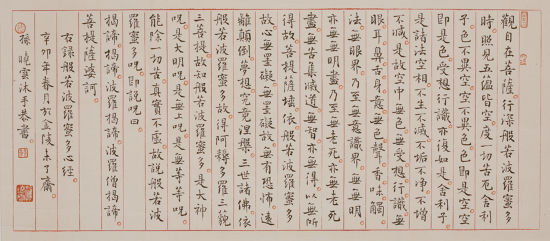 觀自在菩薩行深般若波羅蜜多
時照見五蘊皆空度一切苦厄舍利
子色不異空空不異色色即是空空
即是色受想行識亦復如是舍利子
是諸法空相不生不滅不垢不淨不增
不減是故空中無色無受想行識無
眼耳鼻舌身意無色聲香味觸
法無眼界乃至無意識界無無明
亦無無明盡乃至無老死亦無老死
盡無苦集滅道無智亦無得以無所
得故菩提薩埵依般若波羅蜜多
故心無罣礙無罣礙故無有恐怖遠
離顛倒夢想究竟涅槃三世諸佛依
般若波羅蜜多故得阿耨多羅三藐
三菩提故知般若波羅蜜多是大神
呪是大明呪是無上呪是無等等呪
能除一切苦真實不虛故說般若波
羅蜜多呪即說呪曰
揭諦揭諦波羅揭諦波羅僧揭諦
菩提薩婆訶
右錄般若波羅蜜多心經
辛卯年春月於金陵未了齋
孫曉雲沐手恭書